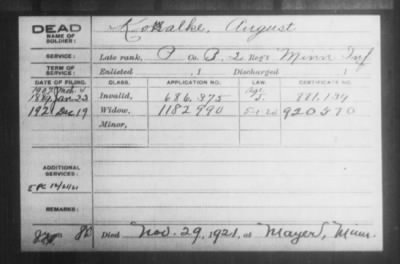 DEAD
NAME OF SOLDIER: Kottalke, August
SERVICE: Late rank, P Co. B. 2 Reg't Minn Inf
TERM OF SERVICE: Enlisted , 1 Discharged , 1
DATE OF FILING. CLASS. APPLICATION NO. LAW. CERTIFICATE NO.
1907 Mch 4
1889 Jan 23 Invalid, 686.375 881.134
192 Dec 19 Widow, 1182990 920570
Minor,
ADDITIONAL SERVICES:
REMARKS:
Died Nov. 29, 1921, at Mayer, Minn.